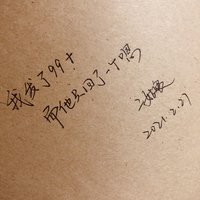 我发了99+
而他只回了一个嗯
2021.2.27